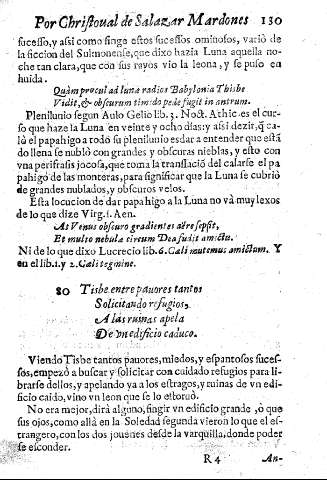 Por Christoual de Salazar Mardones 130
sucesso, y assi como finge estos sucessos ominosos, varió de
la ficcion del Sulmonense, que dixo hazia Luna aquella no-
che tan clara, que con sus rayos vio la leona, y se puso en
huida.
Quàm procul ad lunæ radios Babylonia Thisbe
Vidit, & obscurum timido pede fugit in antrum.
Plenilunio segun Aulo Gelio lib. 3. Noct. Athic. es el cur-
so que haze la Luna en veinte y ocho dias: y assi dezir, q̃ ca-
lò el papahigo a todo su plenilunio es dar a entender que està
do llena se nublò con grandes y obscuras nieblas, y esto con
vna perifrasis jocosa, que toma la translaciõ del calarse el pa
pahigo de las monteras, para significar que la Luna se cubrio
de grandes nublados, y obscuros velos.
Esta locucion de dar papahigo a la Luna no và muy lexos
de lo que dize Virg. 1. Aen.
At Venus obscuro gradientes aëre sepsit,
Et multo nebulæ circum Dea fudit amictu.
Ni de lo que dixo Lucrecio lib. 6. Cæli mutemus amictum. Y
en el lib. 1. y 2. Cæli tegmine.
80 Tisbe entre pauores tantos
Solicitando refugios,
A las ruinas apela
De vn edificio caduco.
Viendo Tisbe tantos pauores, miedos, y espantosos suces-
sos, empezò a buscar y solicitar con cuidado refugios para li-
brarse dellos, y apelando ya a los estragos, y ruinas de vn edi-
ficio caido, vino vn leon que se lo estoruò.
No era mejor, dirà alguno, fingir vn edificio grande, ò que
sus ojos, como allà en la Soledad segunda vieron lo que el es-
trangero, con los dos jouenes desde la varquilla, donde poder
se esconder.
R 4 An-